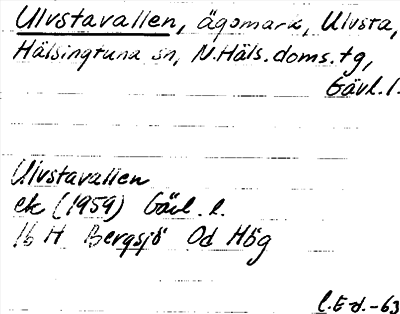 Ulvstavallen, ägomark, Ulvsta,
Hälsingtuna sn, N.Häls.doms.tg,
Gävl.l.
Ulvstavallen
ek (1959) Gävl.l.
16 H Bergsjö Od Hög
l.E d.-63